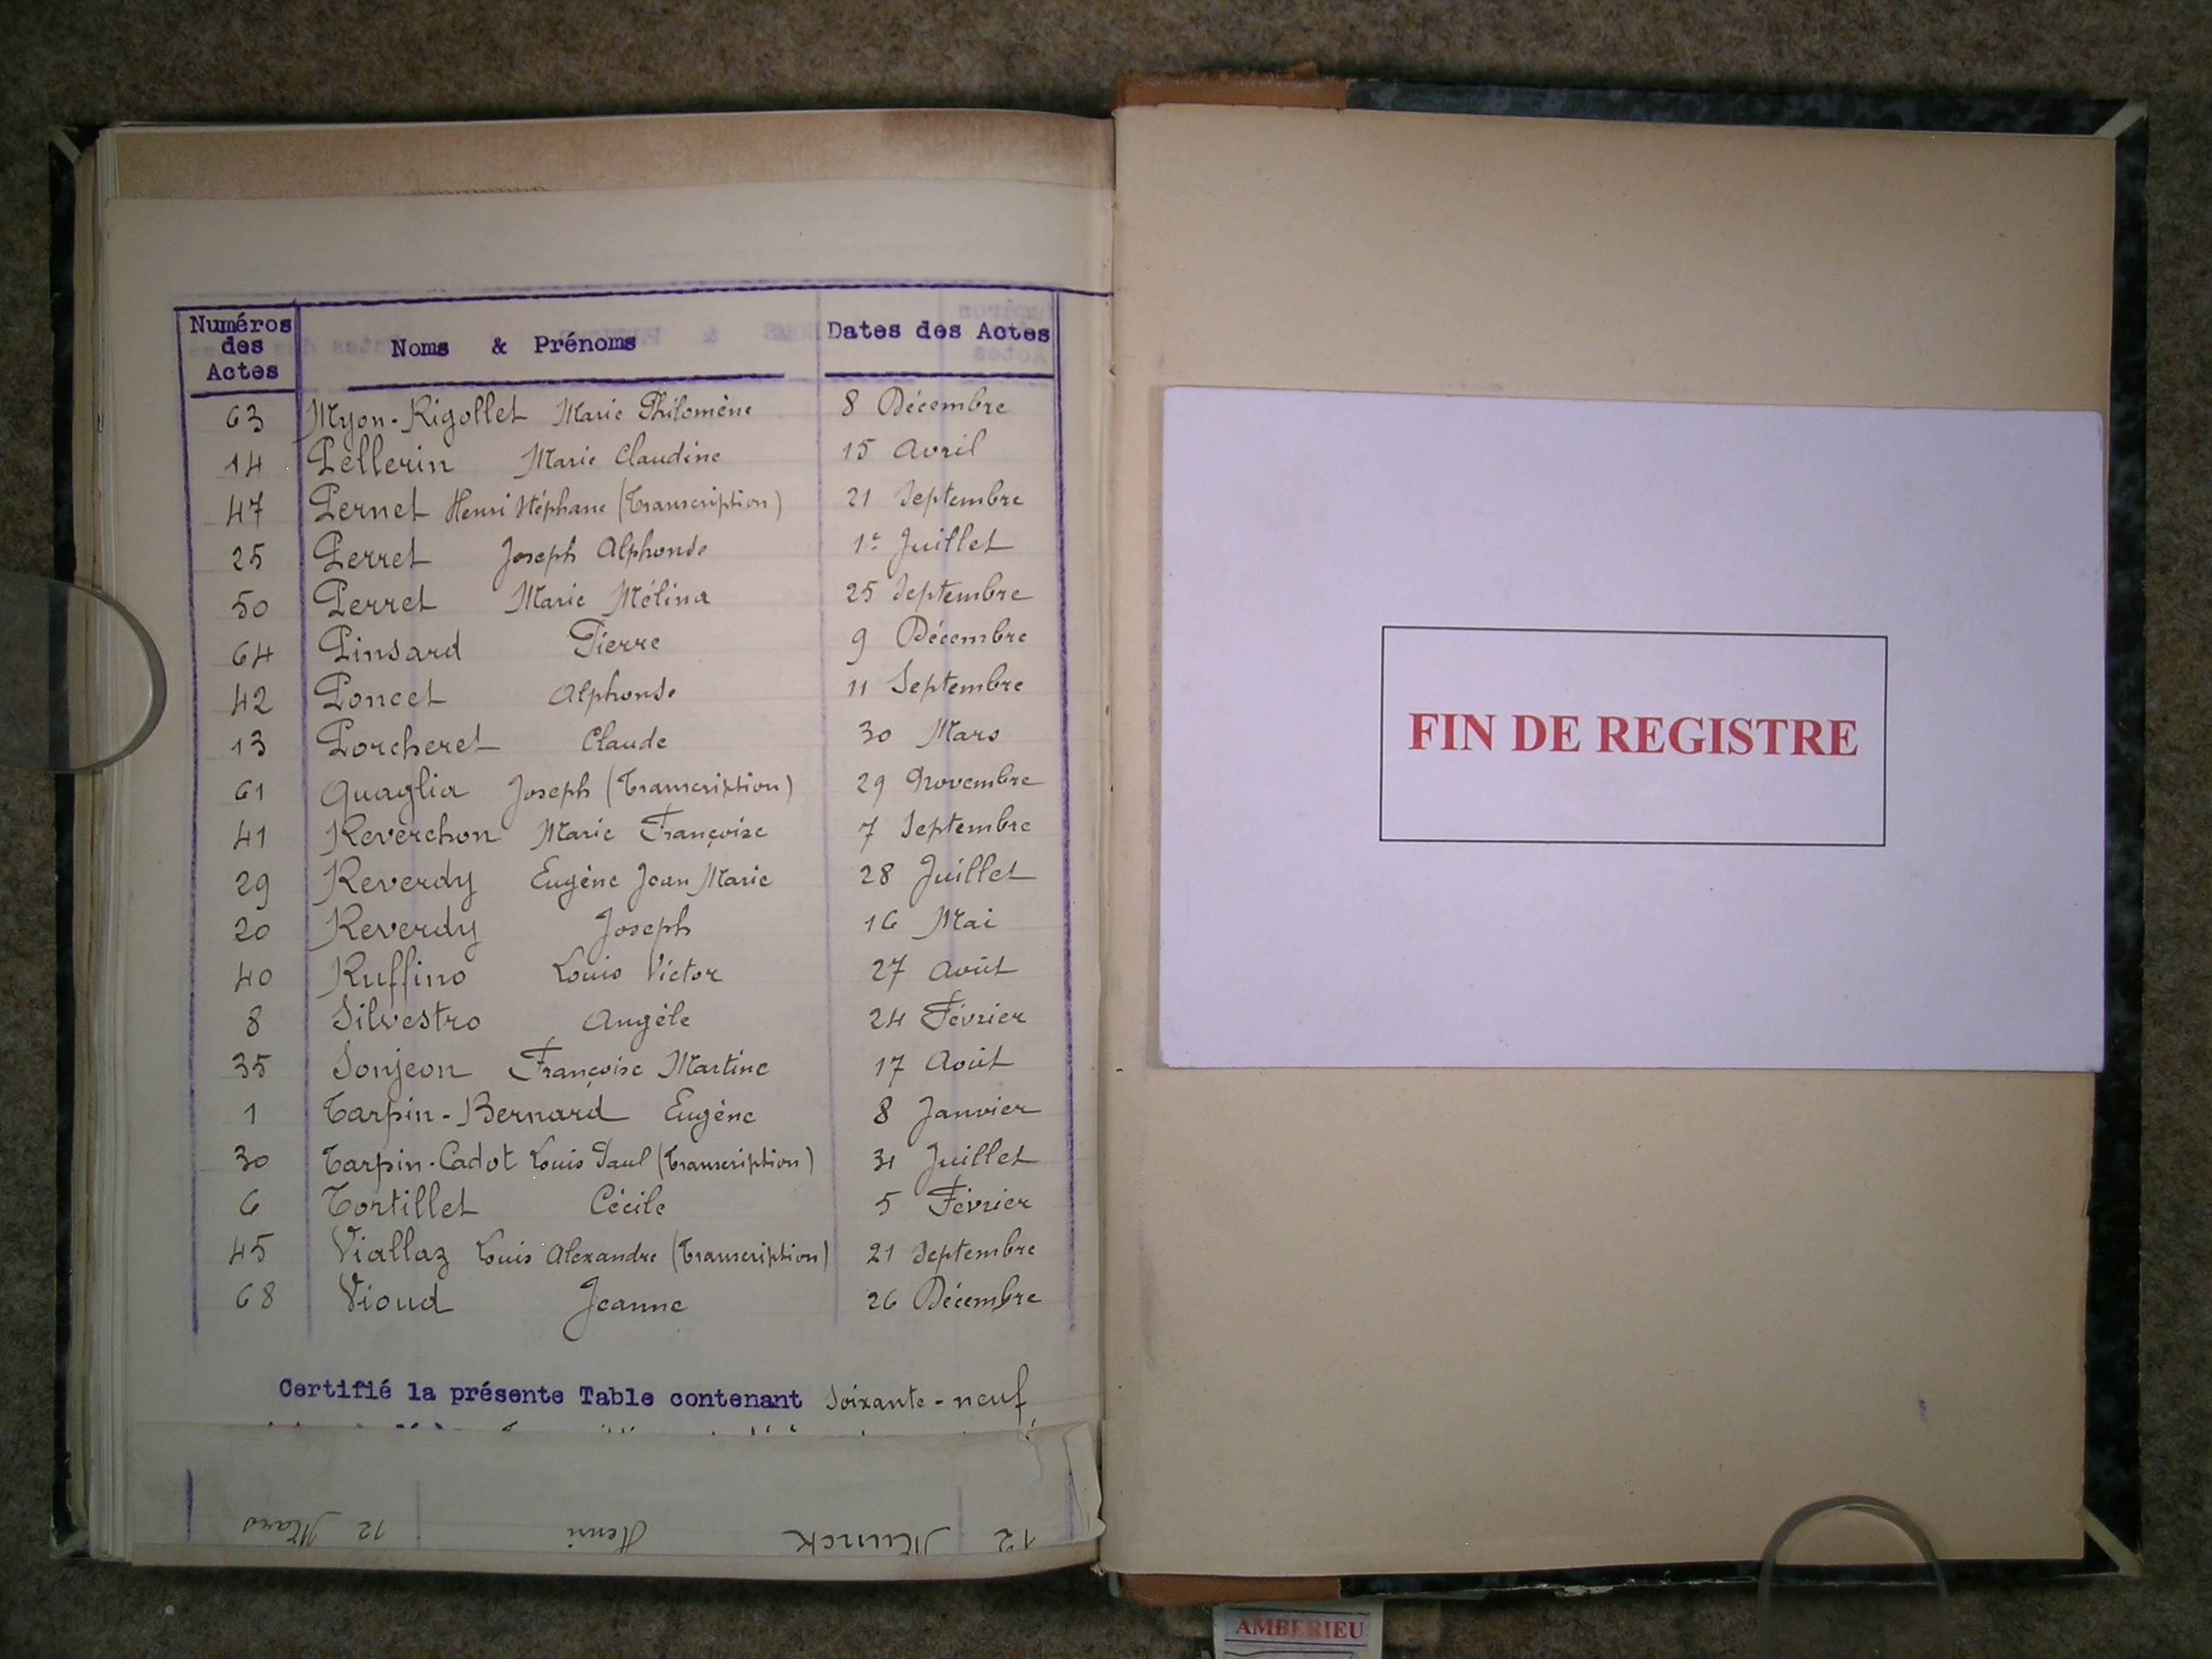 Numéros des Actes | Noms & Prénoms | Dates des Actes
63 Myon-Rigollet Marie Philomène 8 Décembre
14 Pellerin Marie Claudine 15 Avril
47 Pernet Henri Stéphane (Transcription) 21 Septembre
25 Perret Joseph Alphonse 1er Juillet
50 Perret Marie Mélina 25 Septembre
64 Pinsard Pierre 9 Décembre
42 Poncet Alphonse 11 Septembre
13 Porcheret Claude 30 Mars
61 Quaglia Joseph (Transcription) 29 Novembre
41 Reverchon Marie Françoise 7 Septembre
29 Reverdy Eugène Jean Marie 28 Juillet
20 Reverdy Joseph 16 Mai
40 Ruffino Louis Victor 27 Août
8 Silvestro Angèle 24 Février
35 Sonjeon Françoise Martine 17 Août
1 Tarpin-Bernard Eugène 8 Janvier
30 Tarpin-Cadot Louis Paul (Transcription) 31 Juillet
6 Tortillet Cécile 5 Février
45 Viallaz Louis Alexandre (Transcription) 21 Septembre
68 Vioud Jeanne 26 Décembre
Certifié la présente Table contenant Soixante-neuf
12 Munck Henri 12 Mars
FIN DE REGISTRE
AMBERIEU